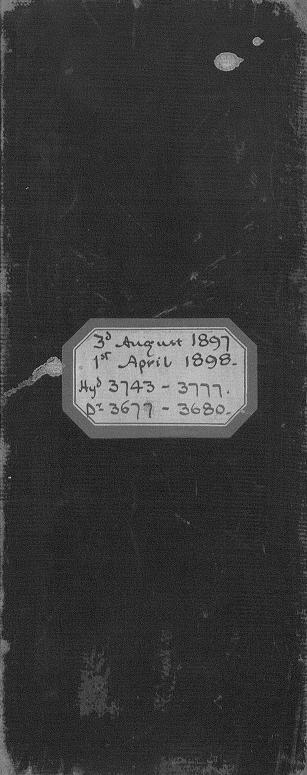 3d August 1897
1st April 1898.
Hyd 3743 - 3777.
Dr 3677 - 3680.